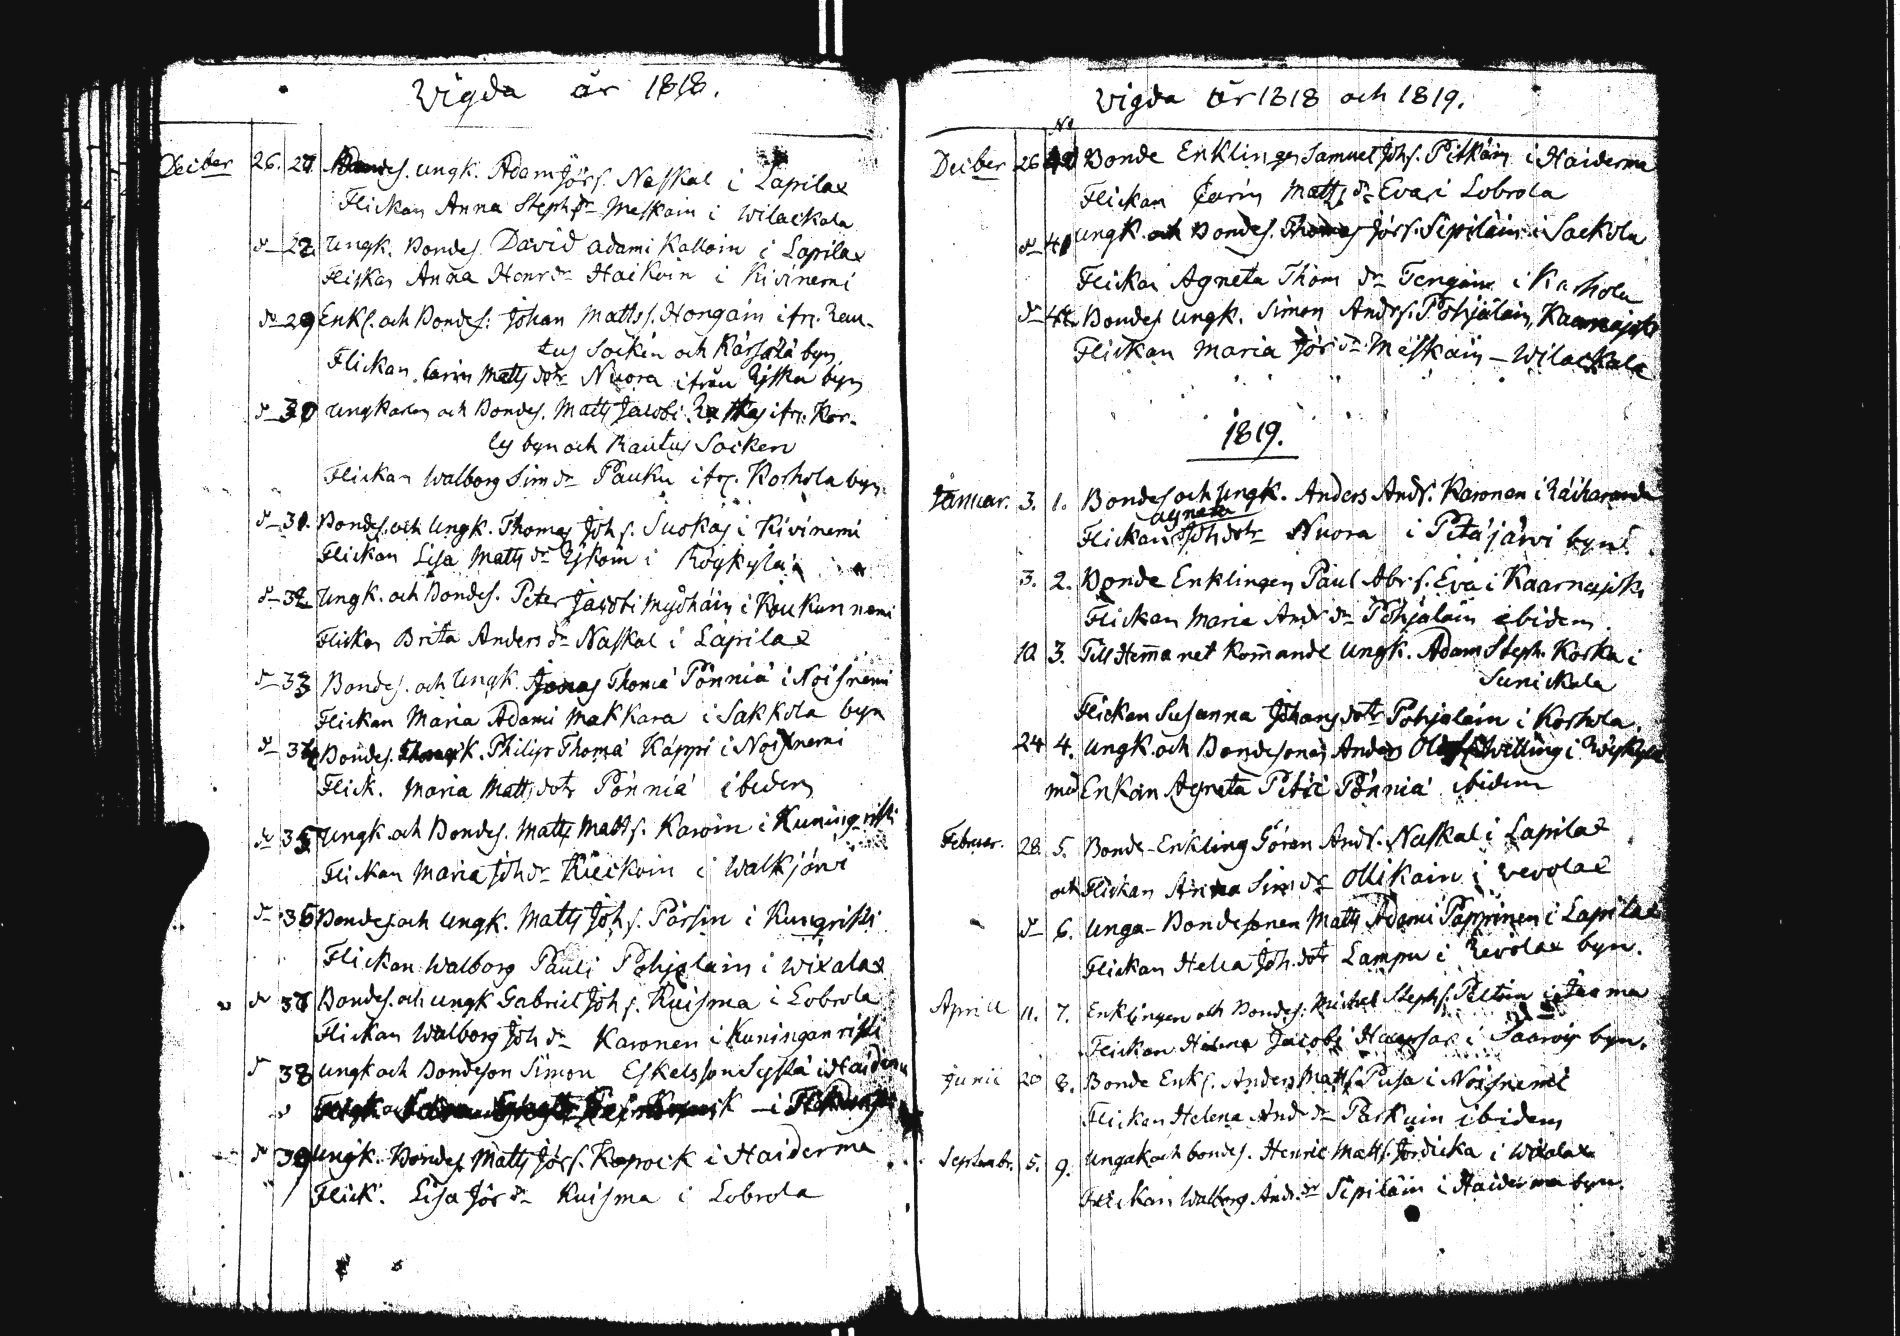 Vigda år 1818.
Decber 26. 27 Bondes. ungk. Adam Jörs. Naskal i Lapilax
Flickan Anna Steph dr Meskain i Wilackala
d- 28. Ungk. Bondes. David Adami Kalloin i Lapilax
Flickan Anna Henr dr Haikoin i Kivinemi
d- 29 Enkl. och Bondes: Johan Matts s. Hongain ifr. Rau-
tus Sockn och Kärsälä byn,
Flickan Carin Matts dotr Nuora ifrån Rijska byn
d- 30 Ungkarlen och Bondes. Matts Jacobi ifr. Kor-
ly byn och Rautus Socken
Flickan Walborg Sim dr Pauku ifr. Korhola byn
d- 31. Bondes. och Ungk. Thomas Joh s. Suokas i Kivinemi
Flickan Lisa Matts dr Rijkoin i Röykylä
d- 32. Ungk. och Bondes. Peter Jacobi Myöhäin i Koukunnemi
Flickan Brita Anders dr Naskal i Lapilax
d- 33 Bondes. och Ungk. Jonas Thomä Pönniä i Noisnemi
Flickan Maria Adami Makkara i Sakkola byn
d- 34 Bondes. Philip Thomä Käppi i Noisnemi
Flick. Maria Matts dotr Pönniä ibidem
d- 35 Ungk och Bondes. Matts Matts s. Karoin i Kuningristi
Flickan Maria Joh dr Kieikoin i Walkjärvi
d- 36 Bondes. och Ungk. Matts Joh s. Pärsin i Kungristi
Flickan Walborg Pauli Pohjalain i Wixalax
d- 37 Bondes. och ungk Gabriel Joh s. Kuisma i Lobrola
Flickan Walborg Joh dr Karonen i Kuninganristi
d- 38 ungk och Bondeson Simon Eskelsson Syssä i Haiderma
d- 39 ungk. Bondes. Matts Jörs. Kopock i Haiderma
Flick. Lisa Jör dr Kuisma i Lobrola
Vigda år 1818 och 1819.
No
Decber 26 Bonde Enklingen Samuel Joh s. Pitkäin i Haiderma
Flickan Carin Matts dr Eva i Lobrola
d- 41 Ungk. och Bondes. Thomas Jörs. Sipiläin i Sackola
Flickan Agneta Thom dr Tengain i Karhola
d- 42. Bondes Ungk. Simon Anders. Pohjalain, Kaarnajoki
Flickan Maria Jör dr Meskäin - Wilackala
1819.
Januar. 3. 1. Bondes och Ungk. Anders Ands. Karonen i Räiharanda
Agneta
Flickan Joh dotr Nuora i Petäjärvi byn
3. 2. Bonde Enklingen Paul Abr s. Eva i Kaarnajoki
Flickan Maria And dr Pohjalain ibidem.
10 3. Till Hemmanet kommande Ungk. Adam Steph. Korka i
Sunickala
Flickan Susanna Johans dotr Pohjalain i Korhola
24 4. Ungk. och Bondesonen Anders i
med Enkan Agneta Petri Pönniä ibidem
Februar. 28. 5. Bonde-Enkling Göran Ands. Naskal i Lapilax
och Flickan Anna Sim dr Ollikain i Revolax
d- 6. Unga-Bondesonen Matts Adami Pappinen i Lapilax
Flickan Hella Joh. dotr Lampu i Revolax byn.
Aprill 11. 7. Enklingen och Bondes. Michel Steph s. Peltoin i Jaama
Flickan Helena Jacobi i Saarois byn.
Junii 20 8. Bonde Enkl. Anders Matts s. Pusa i Noisnemi
Flickan Helena And dr Parkuin ibidem
Septembr. 5. 9. Ungak och bondes. Henric Matts. Jordicka i Wixalax
Flickan Walborg And. dr Sipiläin i Haiderma byn.